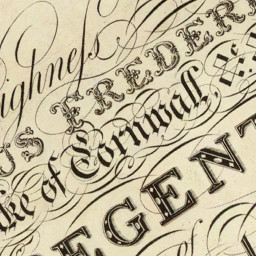 ighneſs
US FREDER
ke of Cornwall, &c.
REGENT
of